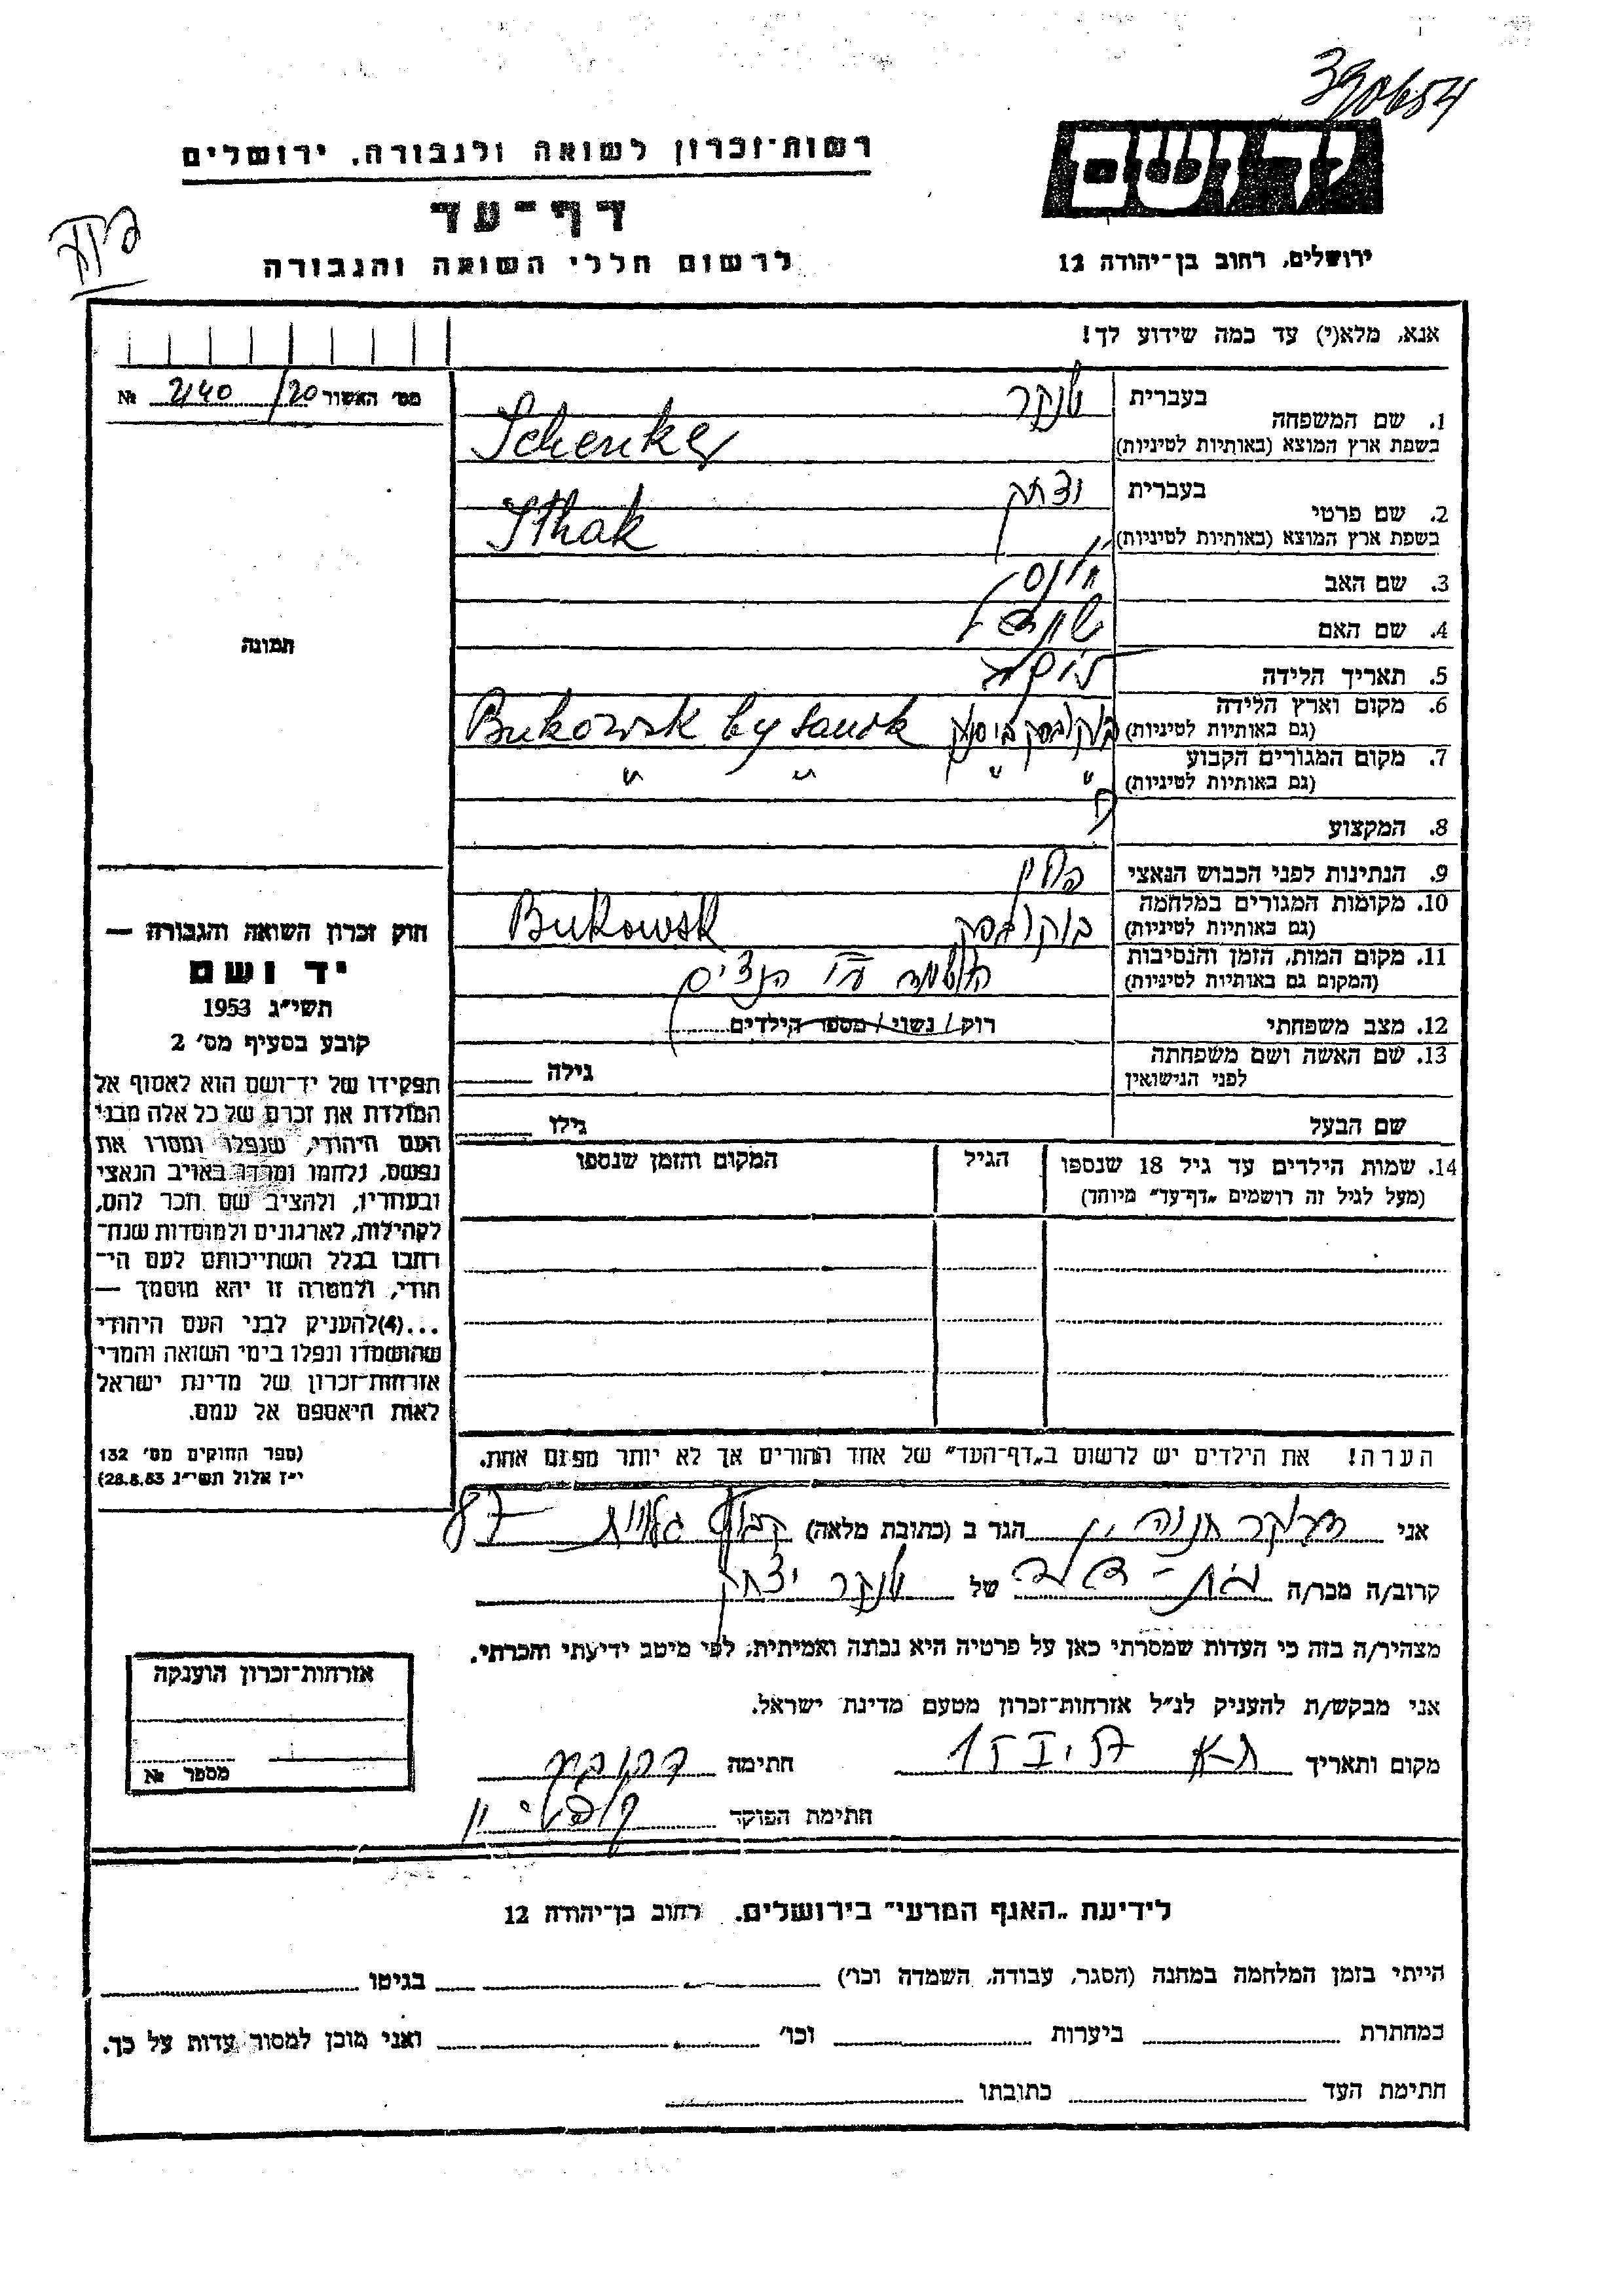 390654
ידושם
רשות־זכרון לשואה ולגבורה, ירושלים
דף־עד
לרשום חללי השואה והגבורה
ירושלים, רחוב בן־יהודה 12
אנא, מלא(י) עד כמה שידוע לך!
מס׳ האשור 2140/20 №
תמונה
1. שם המשפחה
בעברית שנקר
בשפת ארץ המוצא (באותיות לטיניות) Schenker
2. שם פרטי
בעברית יצחק
בשפת ארץ המוצא (באותיות לטיניות) Ithak
3. שם האב
4. שם האם
5. תאריך הלידה
6. מקום וארץ הלידה
(גם באותיות לטיניות) בוקובסק ביי סנוק Bukowsk by Sanok
7. מקום המגורים הקבוע
(גם באותיות לטיניות) " " " "
8. המקצוע
9. הנתינות לפני הכבוש הנאצי פולין
10. מקומות המגורים במלחמה
(גם באותיות לטיניות) בוקובסק Bukowsk
11. מקום המות, הזמן והנסיבות
(המקום גם באותיות לטיניות) הושמד ע"י הנצים
12. מצב משפחתי רוק / נשוי / מספר הילדים
13. שם האשה ושם משפחתה
לפני הנישואין גילה
שם הבעל גילו
14. שמות הילדים עד גיל 18 שנספו
(מעל לגיל זה רושמים „דף־עד״ מיוחד)
הגיל
המקום והזמן שנספו
הערה! את הילדים יש לרשום ב„דף־העד״ של אחד ההורים אך לא יותר מפעם אחת.
חוק זכרון השואה והגבורה —
יד ושם
תשי״ג 1953
קובע בסעיף מס׳ 2
תפקידו של יד־ושם הוא לאסוף אל
המולדת את זכרם של כל אלה מבני
העם היהודי, שנפלו ומסרו את
נפשם, נלחמו ומרדו באויב הנאצי
ובעוזריו, ולהציב שם וזכר להם,
לקהילות, לארגונים ולמוסדות שנח־
רבו בגלל השתייכותם לעם הי־
הודי, ולמטרה זו יהא מוסמך —
...(4) להעניק לבני העם היהודי
שהושמדו ונפלו בימי השואה והמרי
אזרחות־זכרון של מדינת ישראל
לאות היאספם אל עמם.
(ספר החוקים מס׳ 132
י״ז אלול תשי״ג 28.8.53)
אני חנה הגר ב (כתובת מלאה) קבוץ גלויות 87
קרוב/ה מכר/ה בת-דוד של שנקר יצחק
מצהיר/ה בזה כי העדות שמסרתי כאן על פרטיה היא נכונה ואמיתית, לפי מיטב ידיעתי והכרתי.
אני מבקש/ת להעניק לנ״ל אזרחות־זכרון מטעם מדינת ישראל.
מקום ותאריך ת-א חתימה
חתימת הפוקד
אזרחות־זכרון הוענקה
מספר №
לידיעת „האגף המדעי״ בירושלים, רחוב בן־יהודה 12
הייתי בזמן המלחמה במחנה (הסגר, עבודה, השמדה וכו׳) בגיטו
במחתרת ביערות וכו׳ ואני מוכן למסור עדות על כך.
חתימת העד כתובתו